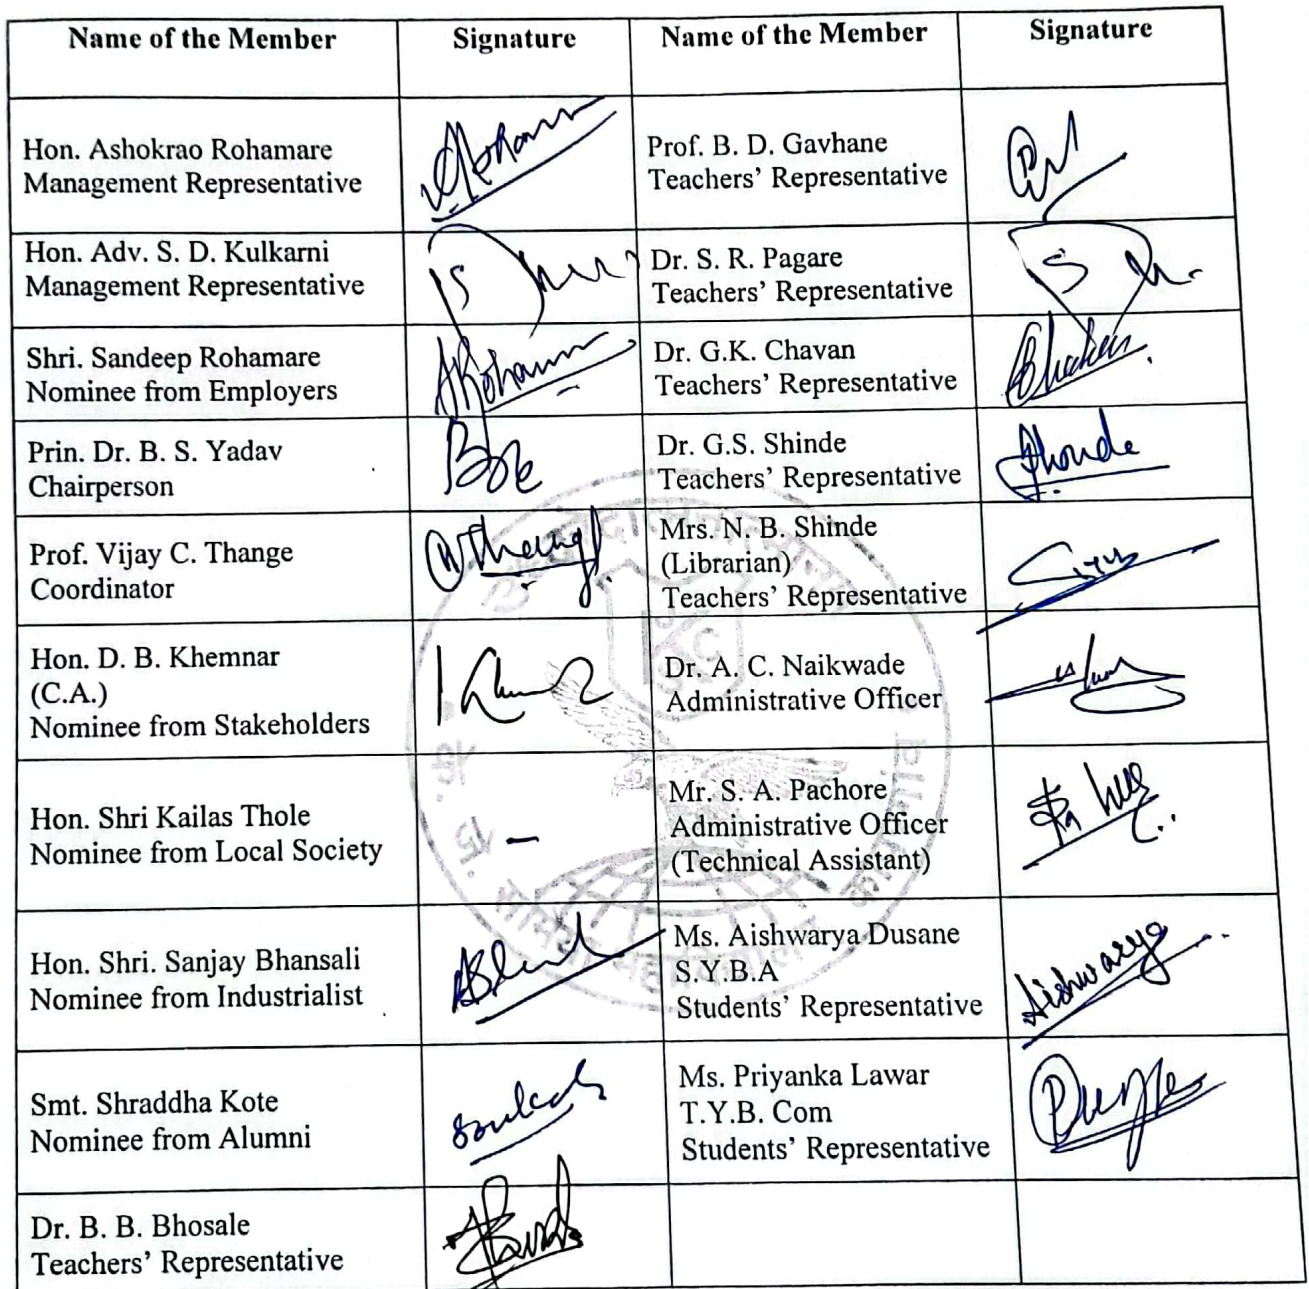 Name of the Member Signature Name of the Member Signature
Hon. Ashokrao Rohamare
Management Representative
Prof. B. D. Gavhane
Teachers’ Representative
Hon. Adv. S. D. Kulkarni
Management Representative
Dr. S. R. Pagare
Teachers’ Representative
Shri. Sandeep Rohamare
Nominee from Employers
Dr. G.K. Chavan
Teachers’ Representative
Prin. Dr. B. S. Yadav
Chairperson
Dr. G.S. Shinde
Teachers’ Representative
Prof. Vijay C. Thange
Coordinator
Mrs. N. B. Shinde
(Librarian)
Teachers’ Representative
Hon. D. B. Khemnar
(C.A.)
Nominee from Stakeholders
Dr. A. C. Naikwade
Administrative Officer
Hon. Shri Kailas Thole
Nominee from Local Society
–
Mr. S. A. Pachore
Administrative Officer
(Technical Assistant)
Hon. Shri. Sanjay Bhansali
Nominee from Industrialist
Ms. Aishwarya Dusane
S.Y.B.A
Students’ Representative
Aishwarya
Smt. Shraddha Kote
Nominee from Alumni
Ms. Priyanka Lawar
T.Y.B. Com
Students’ Representative
Dr. B. B. Bhosale
Teachers’ Representative